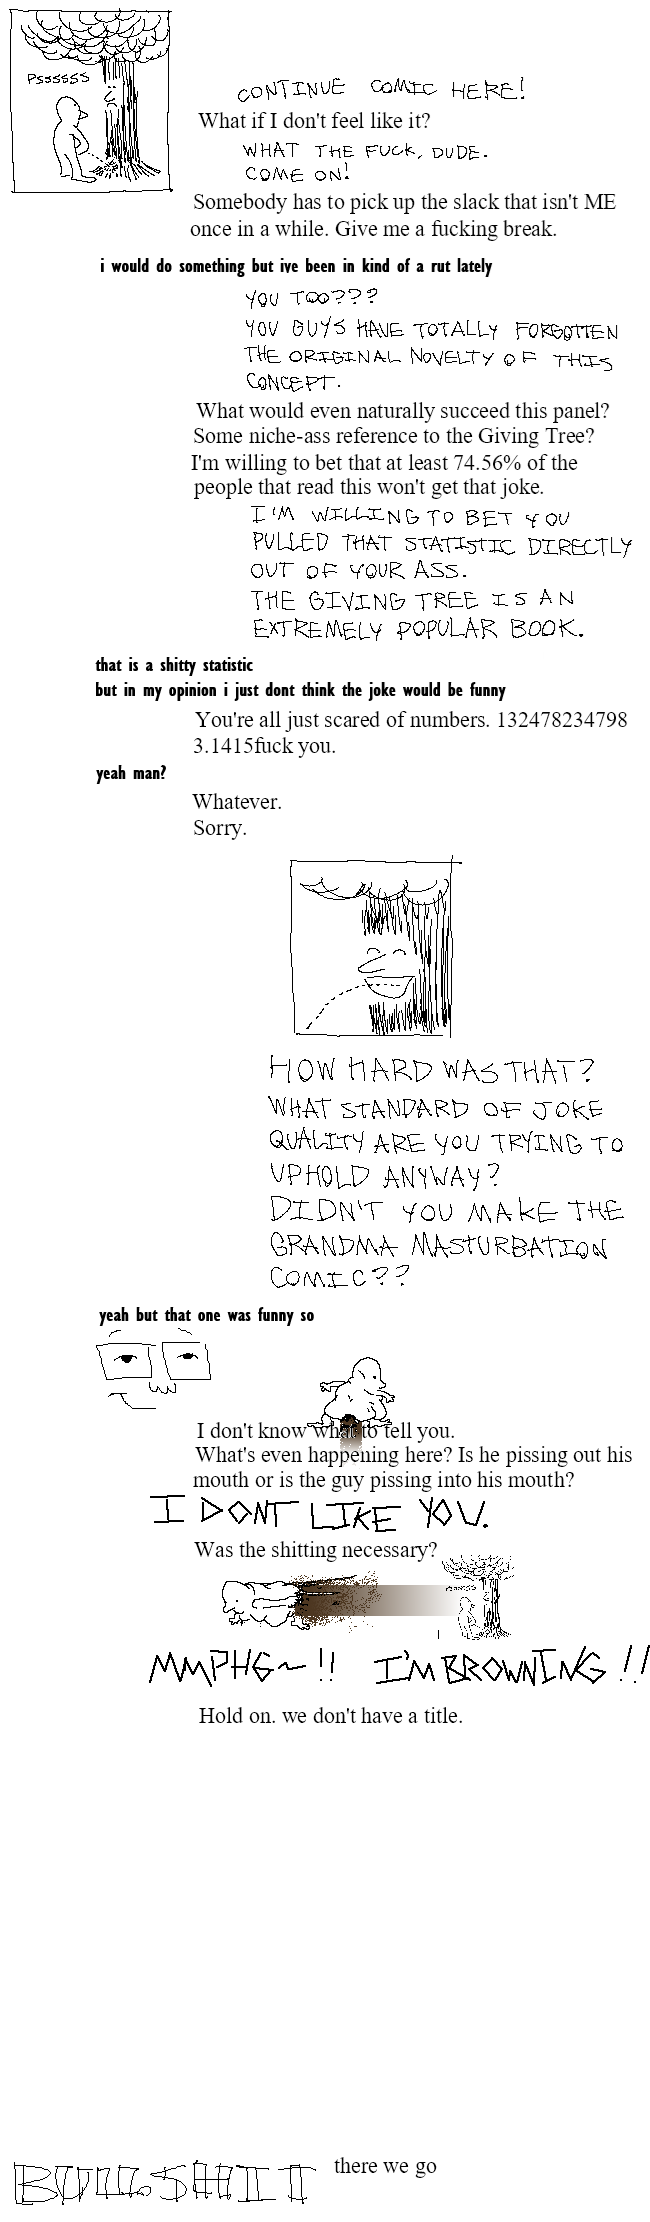 Pssssss
CONTINUE COMIC HERE!
What if I don't feel like it?
WHAT THE FUCK, DUDE.
COME ON!
Somebody has to pick up the slack that isn't ME
once in a while. Give me a fucking break.
i would do something but ive been in kind of a rut lately
YOU TOO???
YOU GUYS HAVE TOTALLY FORGOTTEN
THE ORIGINAL NOVELTY OF THIS
CONCEPT.
What would even naturally succeed this panel?
Some niche-ass reference to the Giving Tree?
I'm willing to bet that at least 74.56% of the
people that read this won't get that joke.
I'M WILLING TO BET YOU
PULLED THAT STATISTIC DIRECTLY
OUT OF YOUR ASS.
THE GIVING TREE IS AN
EXTREMELY POPULAR BOOK.
that is a shitty statistic
but in my opinion i just dont think the joke would be funny
You're all just scared of numbers. 132478234798
3.1415fuck you.
yeah man?
Whatever.
Sorry.
HOW HARD WAS THAT?
WHAT STANDARD OF JOKE
QUALITY ARE YOU TRYING TO
UPHOLD ANYWAY?
DIDN'T YOU MAKE THE
GRANDMA MASTURBATION
COMIC??
yeah but that one was funny so
I don't know what to tell you.
What's even happening here? Is he pissing out his
mouth or is the guy pissing into his mouth?
I DONT LIKE YOU.
Was the shitting necessary?
Pssssss
MMPHG~!! I'M BROWNING!!
Hold on. we don't have a title.
BULLSHIT there we go